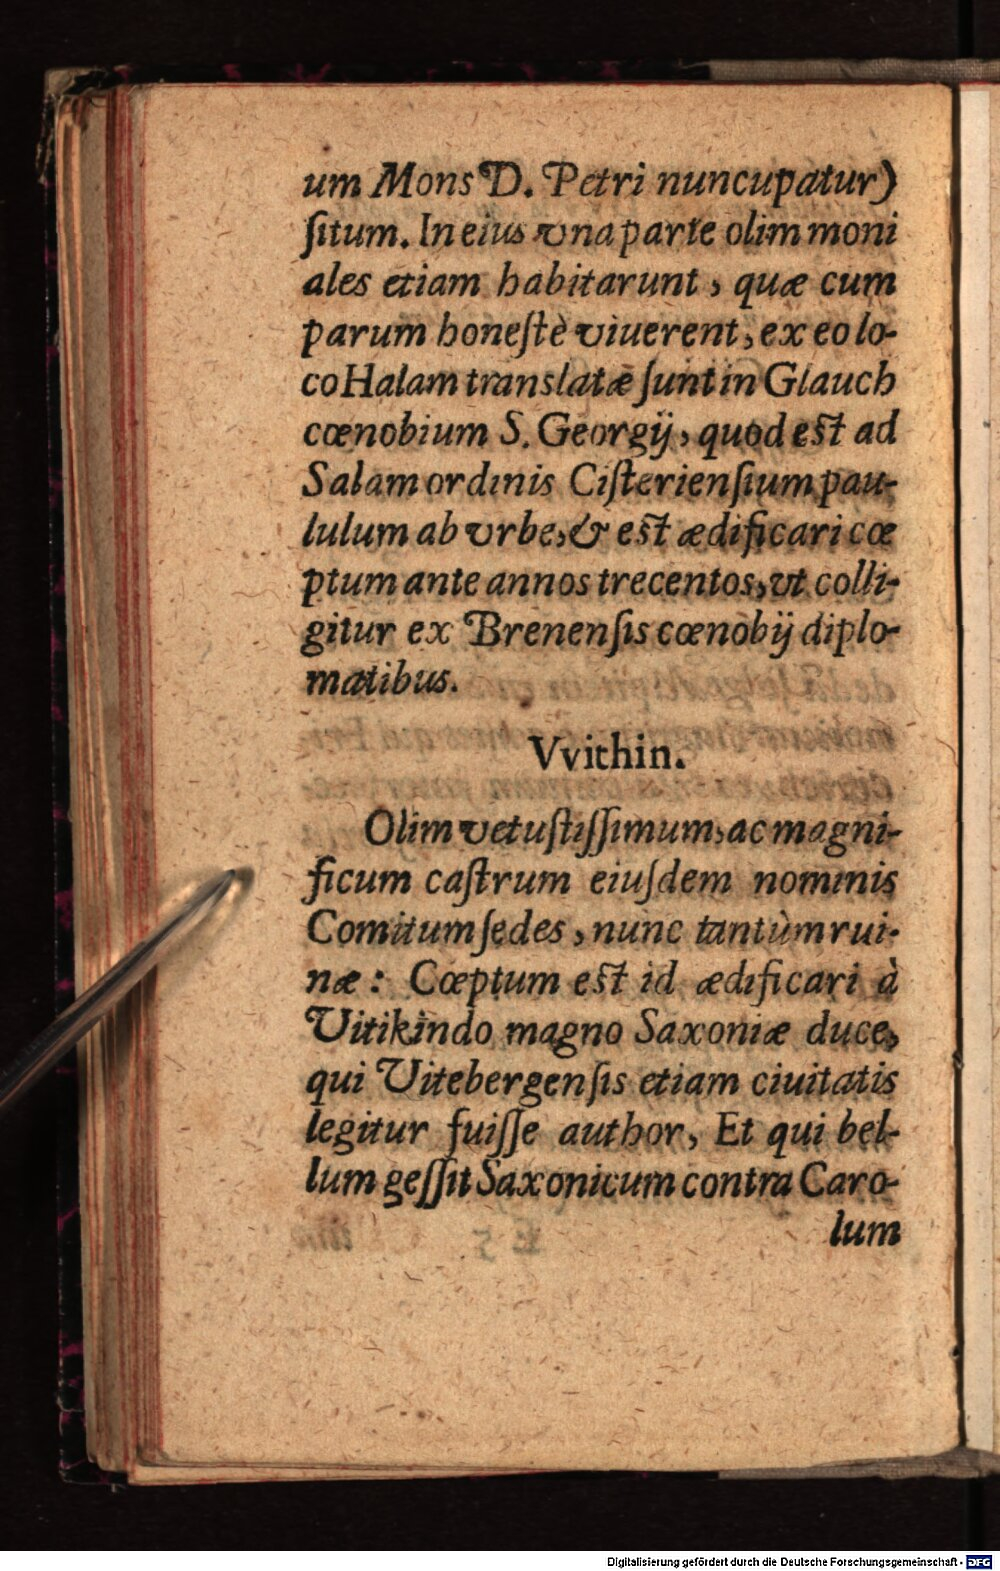 um Mons D. Petri nuncupatur)
ſitum. In eius vna parte olim moni
ales etiam habitarunt, quæ cum
parum honeſtè viuerent, ex eo lo-
co Halam translatæ ſunt in Glauch
cœnobium S. Georgij, quod eſt ad
Salam ordinis Ciſterienſium pau-
lulum ab vrbe, & eſt ædificari cœ
ptum ante annos trecentos, vt colli-
gitur ex Brenenſis cœnobij diplo-
matibus.
Vvithin.
Olim vetuſtiſſimum, ac magni-
ficum caſtrum eiuſdem nominis
Comitum ſedes, nunc tantùm rui-
næ: Cœptum eſt id ædificari à
Vitikindo magno Saxoniæ duce,
qui Vitebergenſis etiam ciuitatis
legitur fuiſſe author, Et qui bel-
lum geſſit Saxonicum contra Caro-
lum
Digitalisierung gefördert durch die Deutsche Forschungsgemeinschaft - DFG